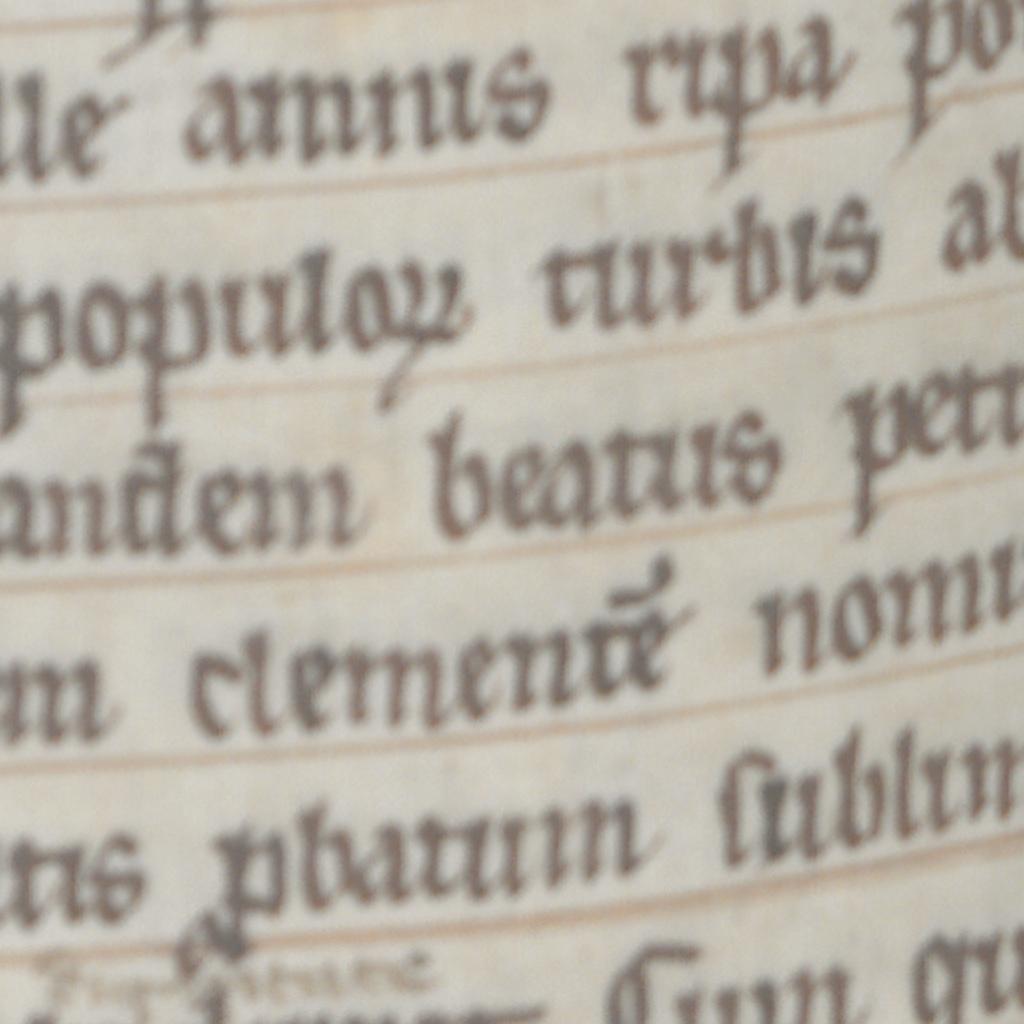 lle amnis ripa po
populoꝝ turbis ab
andem beatus petr
m clementē nomi
tis ꝓbatum sublim
Cum qu